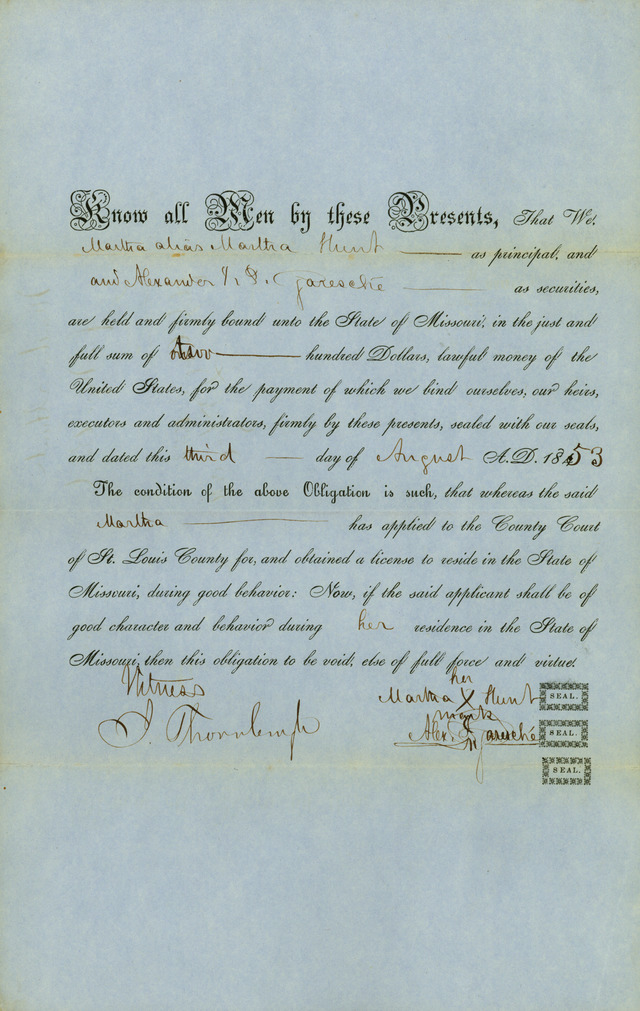 Know all Men by these Presents, That We,
Martha alias Martha Hunt as principal, and
and Alexander J. P. Garesché as securities,
are held and firmly bound unto the State of Missouri, in the just and
full sum of two hundred Dollars, lawful money of the
United States, for the payment of which we bind ourselves, our heirs,
executors and administrators, firmly by these presents, sealed with our seals,
and dated this third day of August A.D. 1853
The condition of the above Obligation is such, that whereas the said
Martha has applied to the County Court
of St. Louis County for, and obtained a license to reside in the State of
Missouri, during good behavior: Now, if the said applicant shall be of
good character and behavior during her residence in the State of
Missouri, then this obligation to be void, else of full force and virtue.
Witness
her
Martha X Hunt SEAL.
mark
J. Thornburgh
Alex. Garesché SEAL.
SEAL.